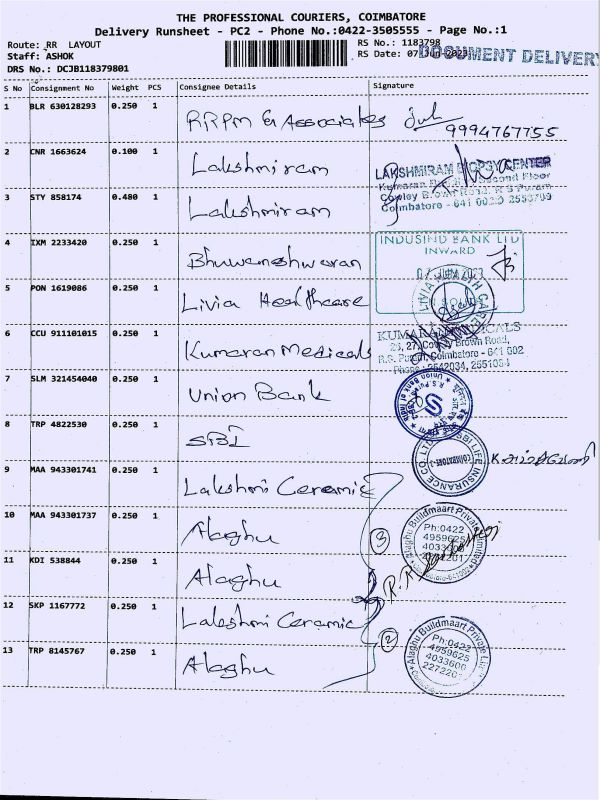 THE PROFESSIONAL COURIERS, COIMBATORE
Delivery Runsheet - PC2 - Phone No.:0422-3505555 - Page No.:1
Route: RR LAYOUT
RS No.: 1183798
Staff: ASHOK
RS Date: 07-Jun-2023
DOCUMENT DELIVERY
DRS No.: DCJB118379801
S No Consignment No Weight PCS Consignee Details Signature
1 BLR 630128293 0.250 1 RRPM & Associates
9994767755
2 CNR 1663624 0.100 1 Lakshmiram
LAKSHMIRAM BIOPSY CENTER
Second Floor
Cowley Brown Road, R S Puram
Coimbatore - 641 002
3 STY 858174 0.480 1 Lakshmiram
4 IXM 2233420 0.250 1 Bhuwaneshwaran
INDUSIND BANK LTD
INWARD
07 JUN 2023
5 PON 1619086 0.250 1 Livia Healthcare
LIVIA HEALTH CARE
6 CCU 911101015 0.250 1 Kumaran Medicals
KUMARAN MEDICALS
Cowley Brown Road,
R.S. Puram, Coimbatore - 641 002
Phone: 2542034, 2551084
7 SLM 321454040 0.250 1 Union Bank
Union Bank of India
8 TRP 4822530 0.250 1 SBI
SBI LIFE INSURANCE CO. LTD
9 MAA 943301741 0.250 1 Lakshmi Ceramic
10 MAA 943301737 0.250 1 Alaghu
3
Alaghu Buildmaart Private Limited
Ph:0422
4959625
11 KDI 538844 0.250 1 Alaghu
12 SKP 1167772 0.250 1 Lakshmi Ceramic
2
13 TRP 8145767 0.250 1 Alaghu
Alaghu Buildmaart Private
Ph:0422
4959625
4033600